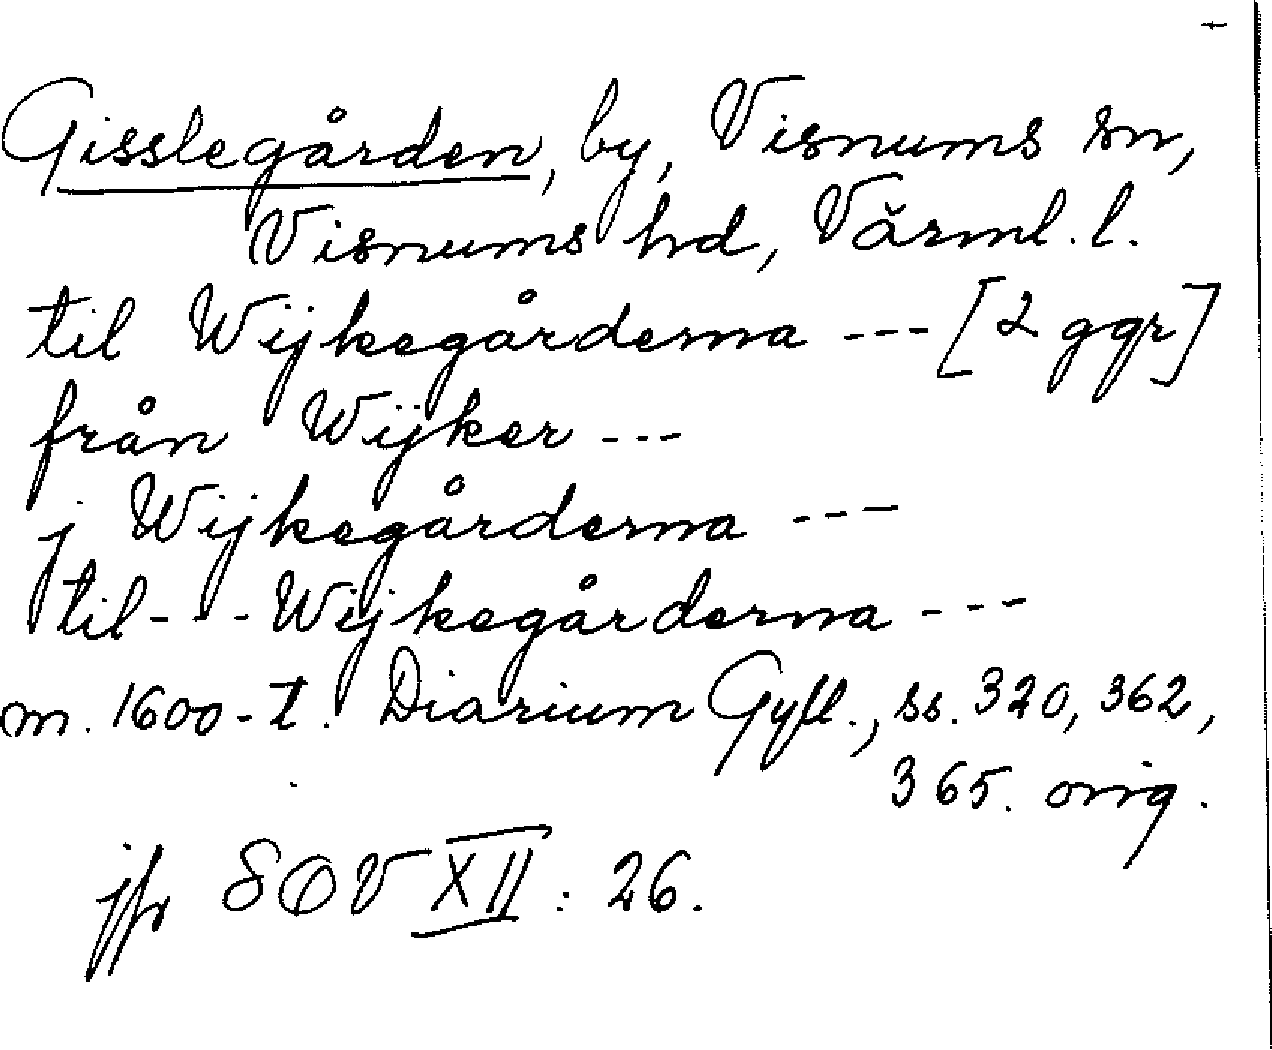 Gisslegården, by, Visnums sn,
Visnums hd, Värml. l.
til Wijkegårderna --- [2 ggr]
från Wijker ---
j Wijkegårderna ---
til --- Wijkegårderna ---
m. 1600-t. Diarium Gyll., ss. 320, 362,
365. orig.
jfr SOV XII : 26.